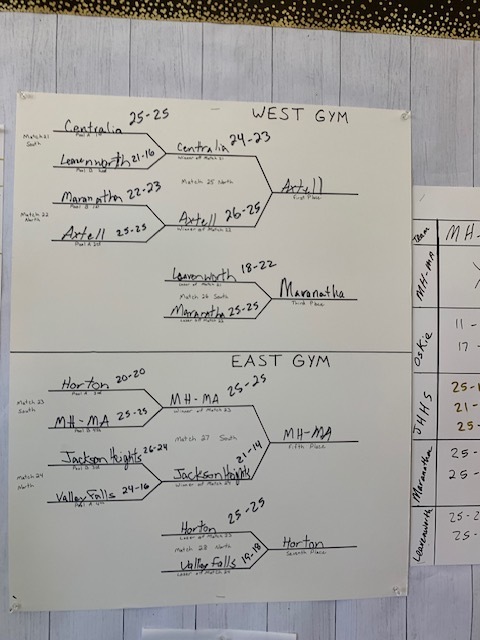 WEST GYM
Centralia 25-25
Pool A 1st
Match 21
South
Leavenworth 21-16
Centralia 24-23
Winner of Match 21
Maranatha 22-23
Pool B 1st
Match 25 North
Axtell
First Place
Match 22
North
Axtell 25-25
Pool A 2nd
Axtell 26-25
Winner of Match 22
Leavenworth 18-22
Loser of Match 21
Match 26 South
Maranatha
Third Place
Maranatha 25-25
Loser of Match 22
EAST GYM
Horton 20-20
Pool A 3rd
Match 23
South
MH-MA 25-25
Pool B 4th
MH-MA 25-25
Winner of Match 23
Jackson Heights 26-24
Pool B 3rd
Match 27 South
MH-MA
Fifth Place
Match 24
North
Valley Falls 24-16
Pool A 4th
Jackson Heights 21-14
Winner of Match 24
Horton 25-25
Loser of Match 23
Match 28 North
Horton
Seventh Place
Valley Falls 19-18
Loser of Match 24
Team MH-
MH-MA
Oskie 11 -
17 -
JHHS 25-1
21-
25-
Maranatha 25-
25-
Leavenworth 25-2
25-